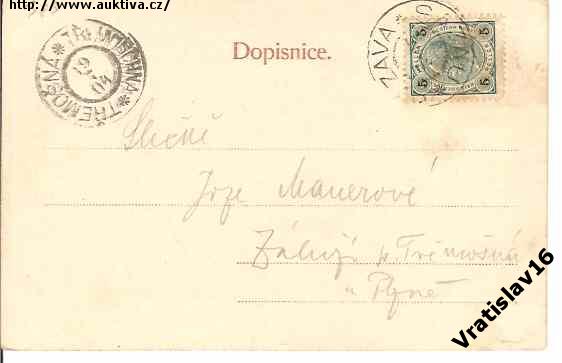 http://www.auktiva.cz/
TŘEMOSCHNA * TŘEMOŠNÁ *
9 04
Dopisnice.
ZAVA
5 5
5 5
Slečně
Manerové
Záluží p. Třemošná
u Plzně
Vratislav16